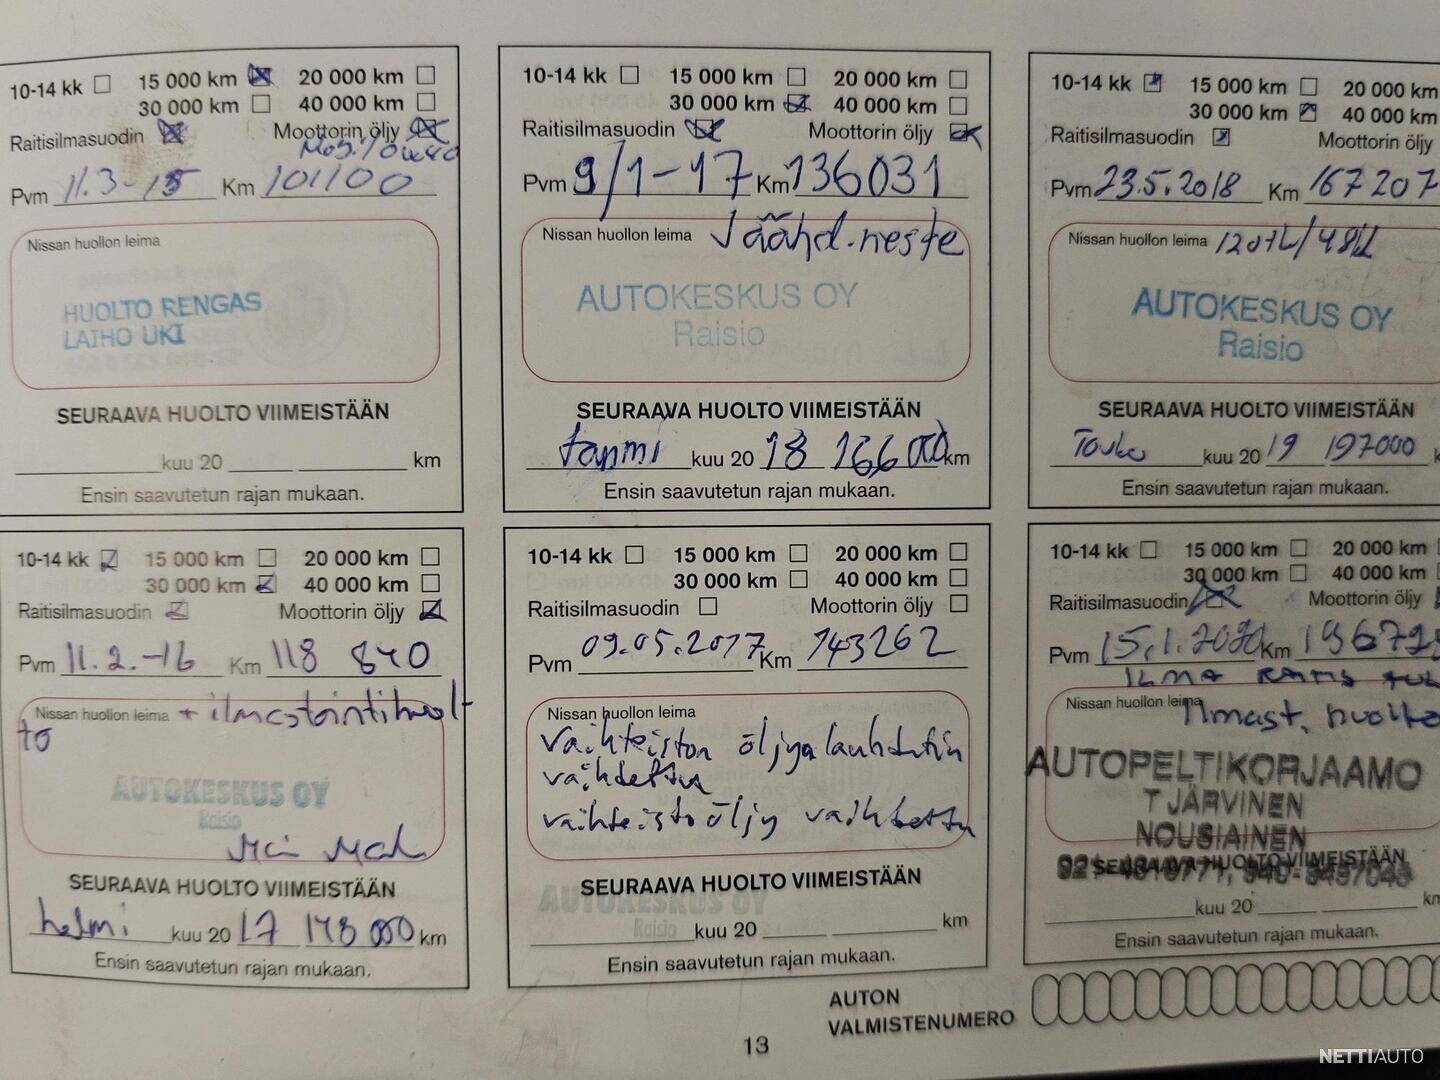 10-14 kk 15 000 km 20 000 km
30 000 km 40 000 km
Raitisilmasuodin Moottorin öljy
Pvm 11.3-15 Km 101100
Nissan huollon leima
HUOLTO RENGAS
LAIHO UKI
SEURAAVA HUOLTO VIIMEISTÄÄN
kuu 20 km
Ensin saavutetun rajan mukaan.
10-14 kk 15 000 km 20 000 km
30 000 km 40 000 km
Raitisilmasuodin Moottorin öljy
Pvm 9/1-17 Km 136031
Nissan huollon leima Jäähd.neste
AUTOKESKUS OY
Raisio
SEURAAVA HUOLTO VIIMEISTÄÄN
tammi kuu 20 18 166000 km
Ensin saavutetun rajan mukaan.
10-14 kk 15 000 km 20 000 km
30 000 km 40 000 km
Raitisilmasuodin Moottorin öljy
Pvm 23.5.2018 Km 167207
Nissan huollon leima
AUTOKESKUS OY
Raisio
SEURAAVA HUOLTO VIIMEISTÄÄN
Touko kuu 20 19 197000
Ensin saavutetun rajan mukaan.
10-14 kk 15 000 km 20 000 km
30 000 km 40 000 km
Raitisilmasuodin Moottorin öljy
Pvm 11.2.-16 Km 118 840
Nissan huollon leima + ilmastointihuol-
to
AUTOKESKUS OY
Raisio
SEURAAVA HUOLTO VIIMEISTÄÄN
helmi kuu 20 17 148 000 km
Ensin saavutetun rajan mukaan.
10-14 kk 15 000 km 20 000 km
30 000 km 40 000 km
Raitisilmasuodin Moottorin öljy
Pvm 09.05.2017 Km 143262
Nissan huollon leima
vaihteiston öljynlauhdutin
vaihdettu
vaihteistoöljy vaihdettu
SEURAAVA HUOLTO VIIMEISTÄÄN
AUTOKESKUS OY
Raisio
kuu 20 km
Ensin saavutetun rajan mukaan.
10-14 kk 15 000 km 20 000 km
30 000 km 40 000 km
Raitisilmasuodin Moottorin öljy
Pvm 15.1.2020 Km 196725
ILMA
Nissan huollon leima Ilmast. huolto
AUTOPELTIKORJAAMO
T JÄRVINEN
NOUSIAINEN
SEURAAVA HUOLTO VIIMEISTÄÄN
kuu 20 km
Ensin saavutetun rajan mukaan.
AUTON
VALMISTENUMERO
13
NETTIAUTO